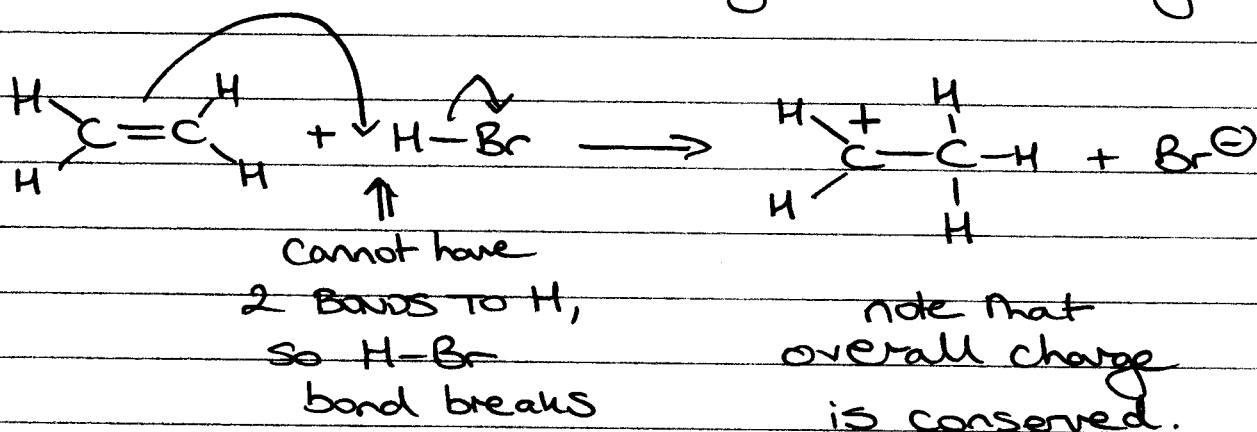 H H H H
C=C + H-Br ⟶ C+-C-H + Br⊖
H H H H
⇑
Cannot have
2 BONDS TO H,
so H-Br
bond breaks
note that
overall charge
is conserved.